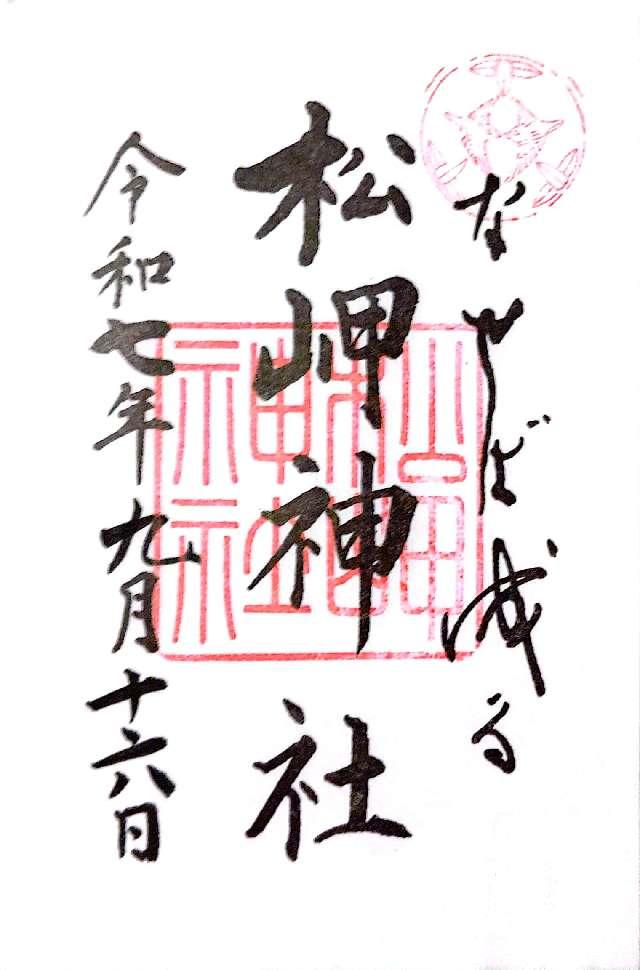 なせば成る
松岬神社
令和七年九月十六日